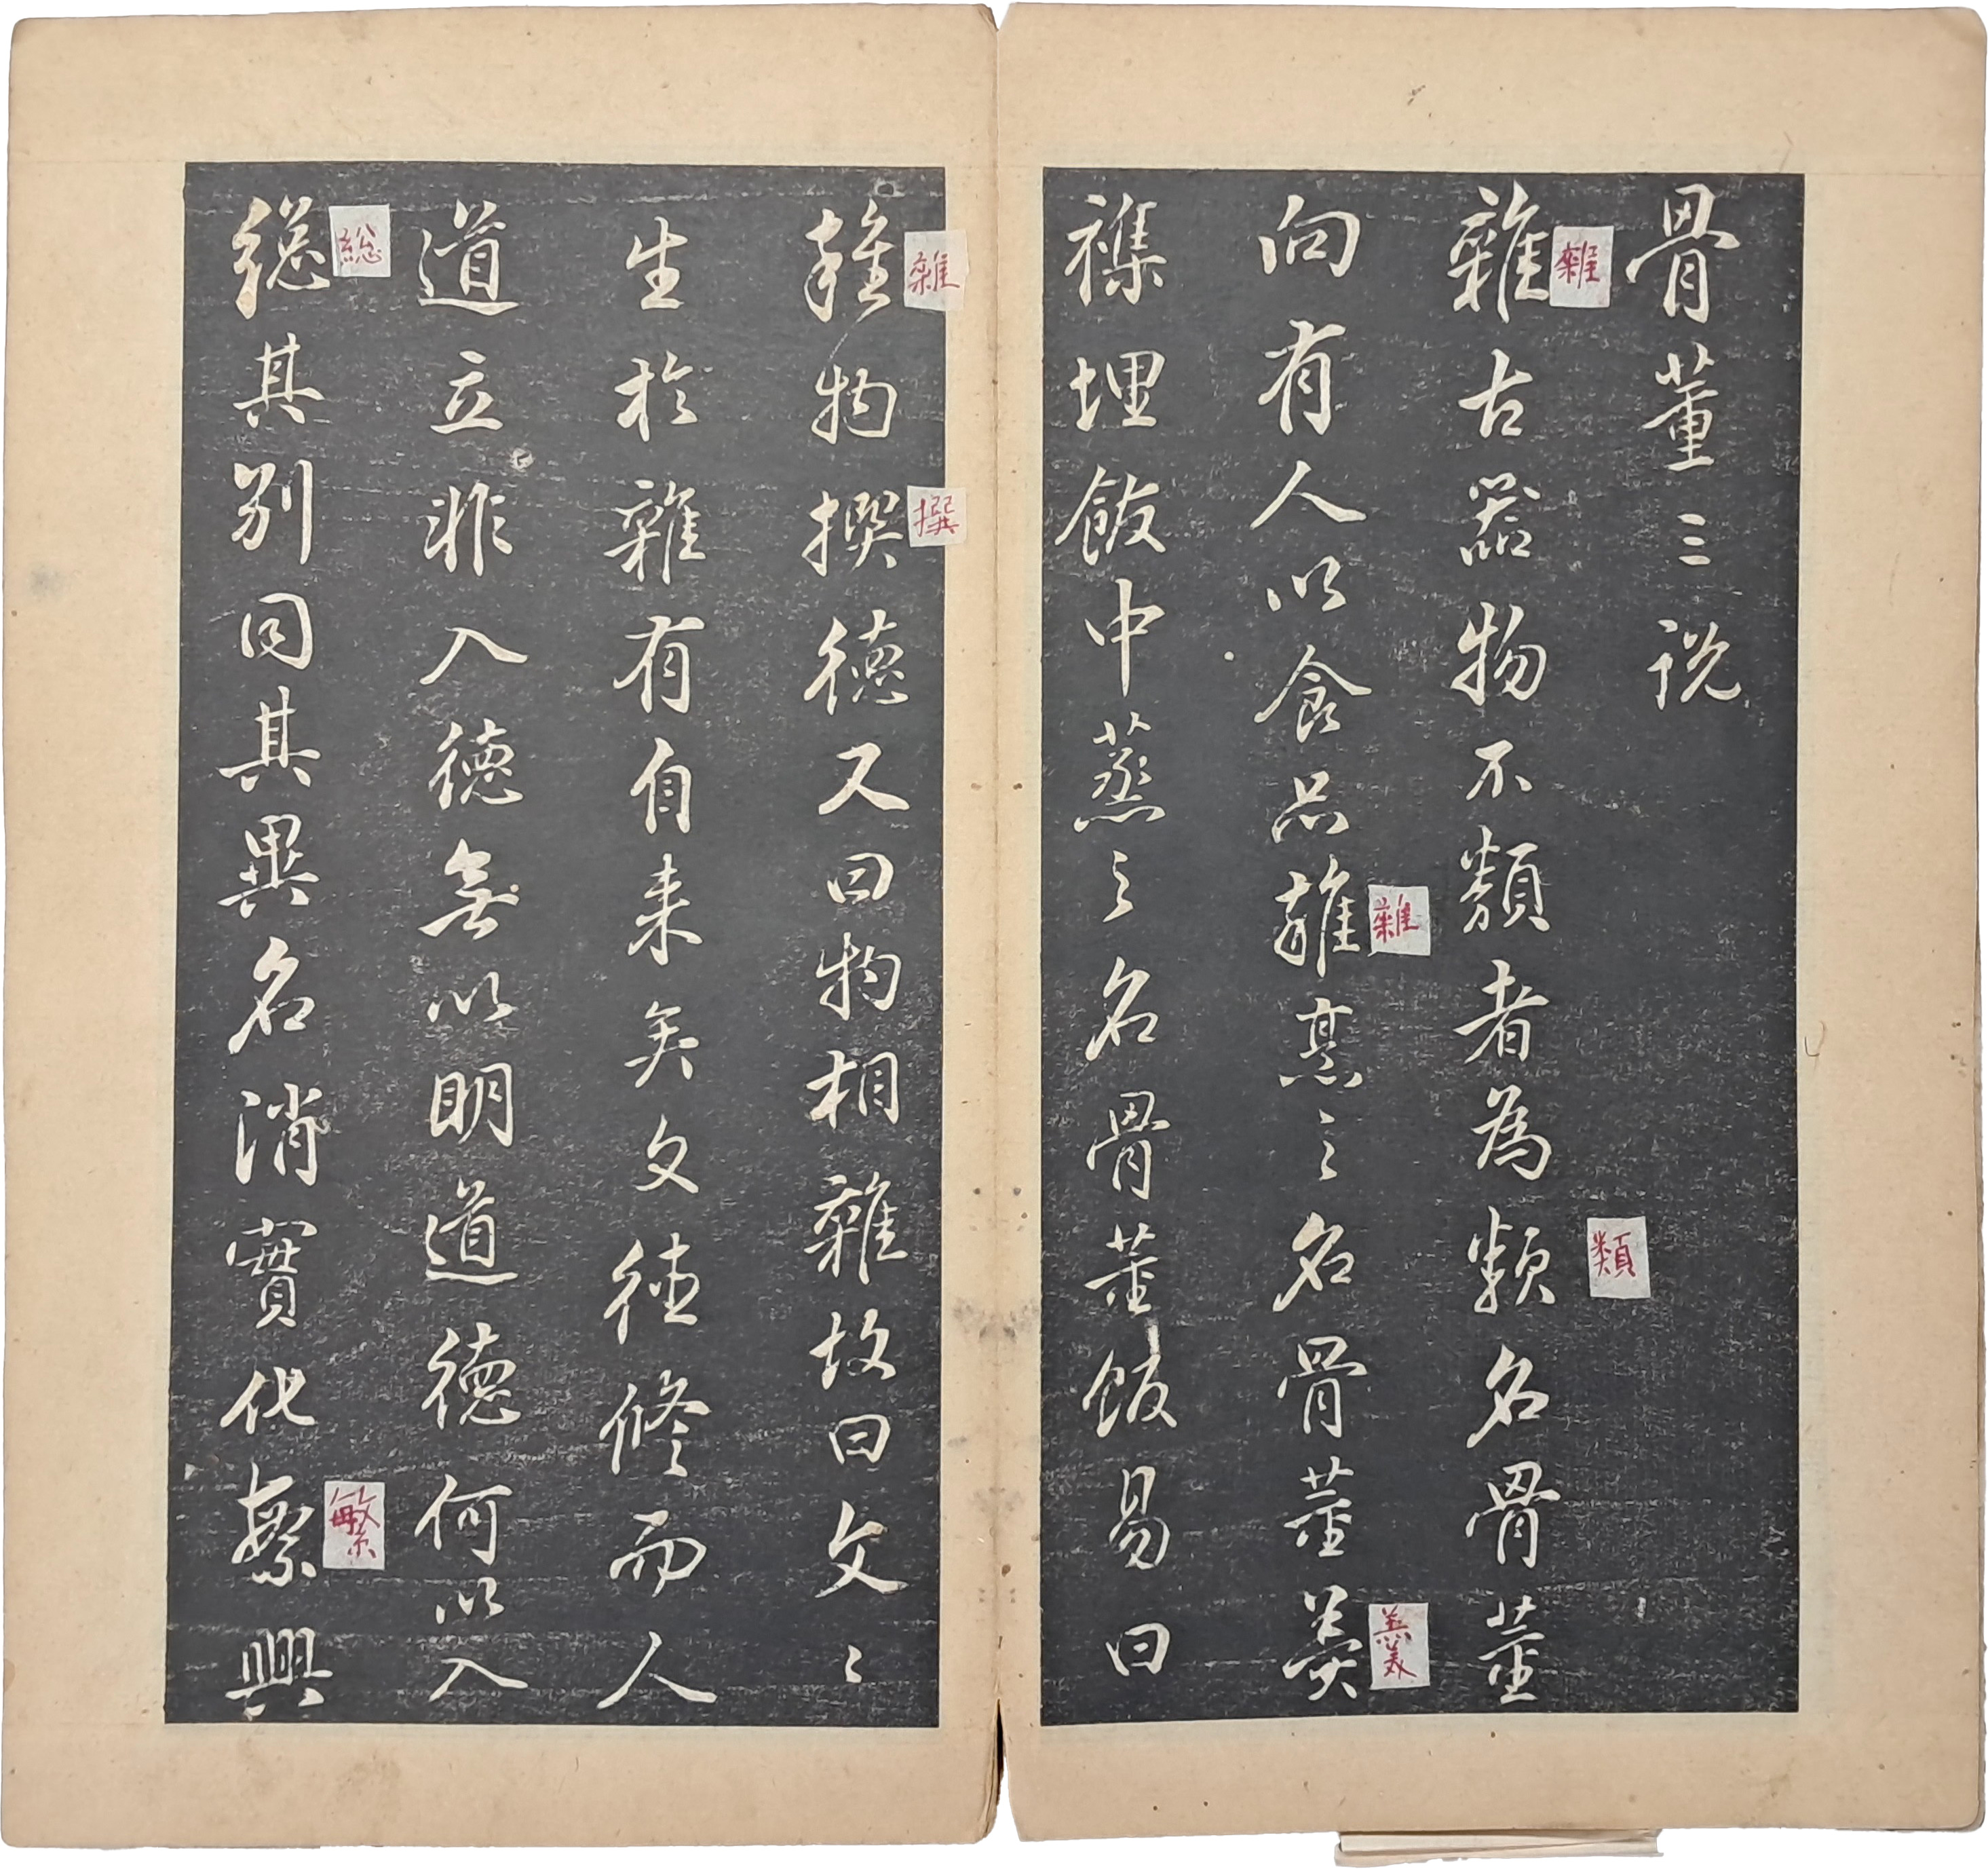 骨董三説
雜古器物不類者為類名骨董
雜
類
向有人以食品雜烹之名骨董羹
雜
羹
襍埋飯中蒸之名骨董飯易曰
雜物撰德又曰物相雜故曰文〻
雜
撰
生於雜有自来矣文德修而人
道立非入德無以明道德何以入
總其別同其異名消實化繁興
総
繁